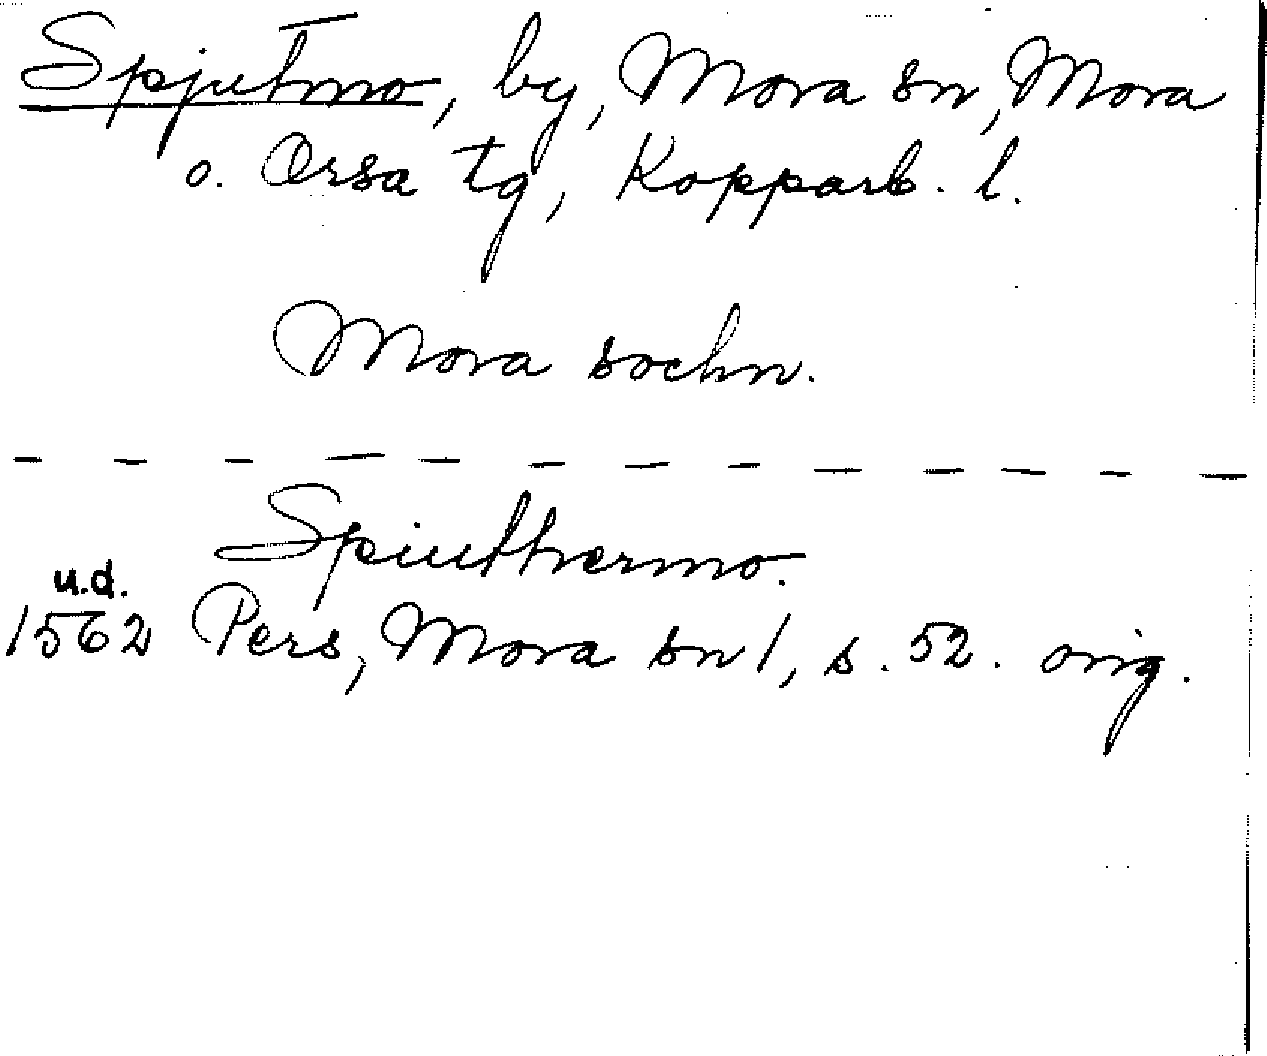 Spjutmo, by, Mora sn, Mora
o. Orsa tg, Kopparb. l.
Mora sochn.
Spiuthermo.
u.d.
1562 Pers, Mora sn 1, s. 52. orig.